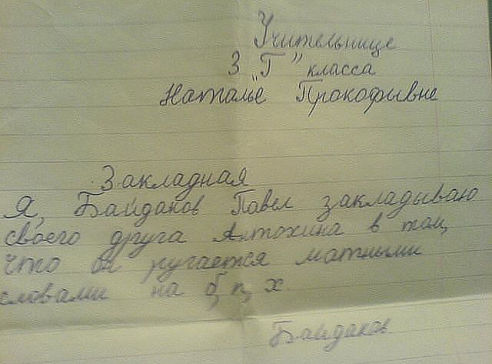 Учительнице
3 "Г" класса
Наталье Прокофывне
Закладная
Я, Байдаков Павел закладываю
своего друга Антохина в том,
что он ругается матными
словами на б, п, х
Байдаков